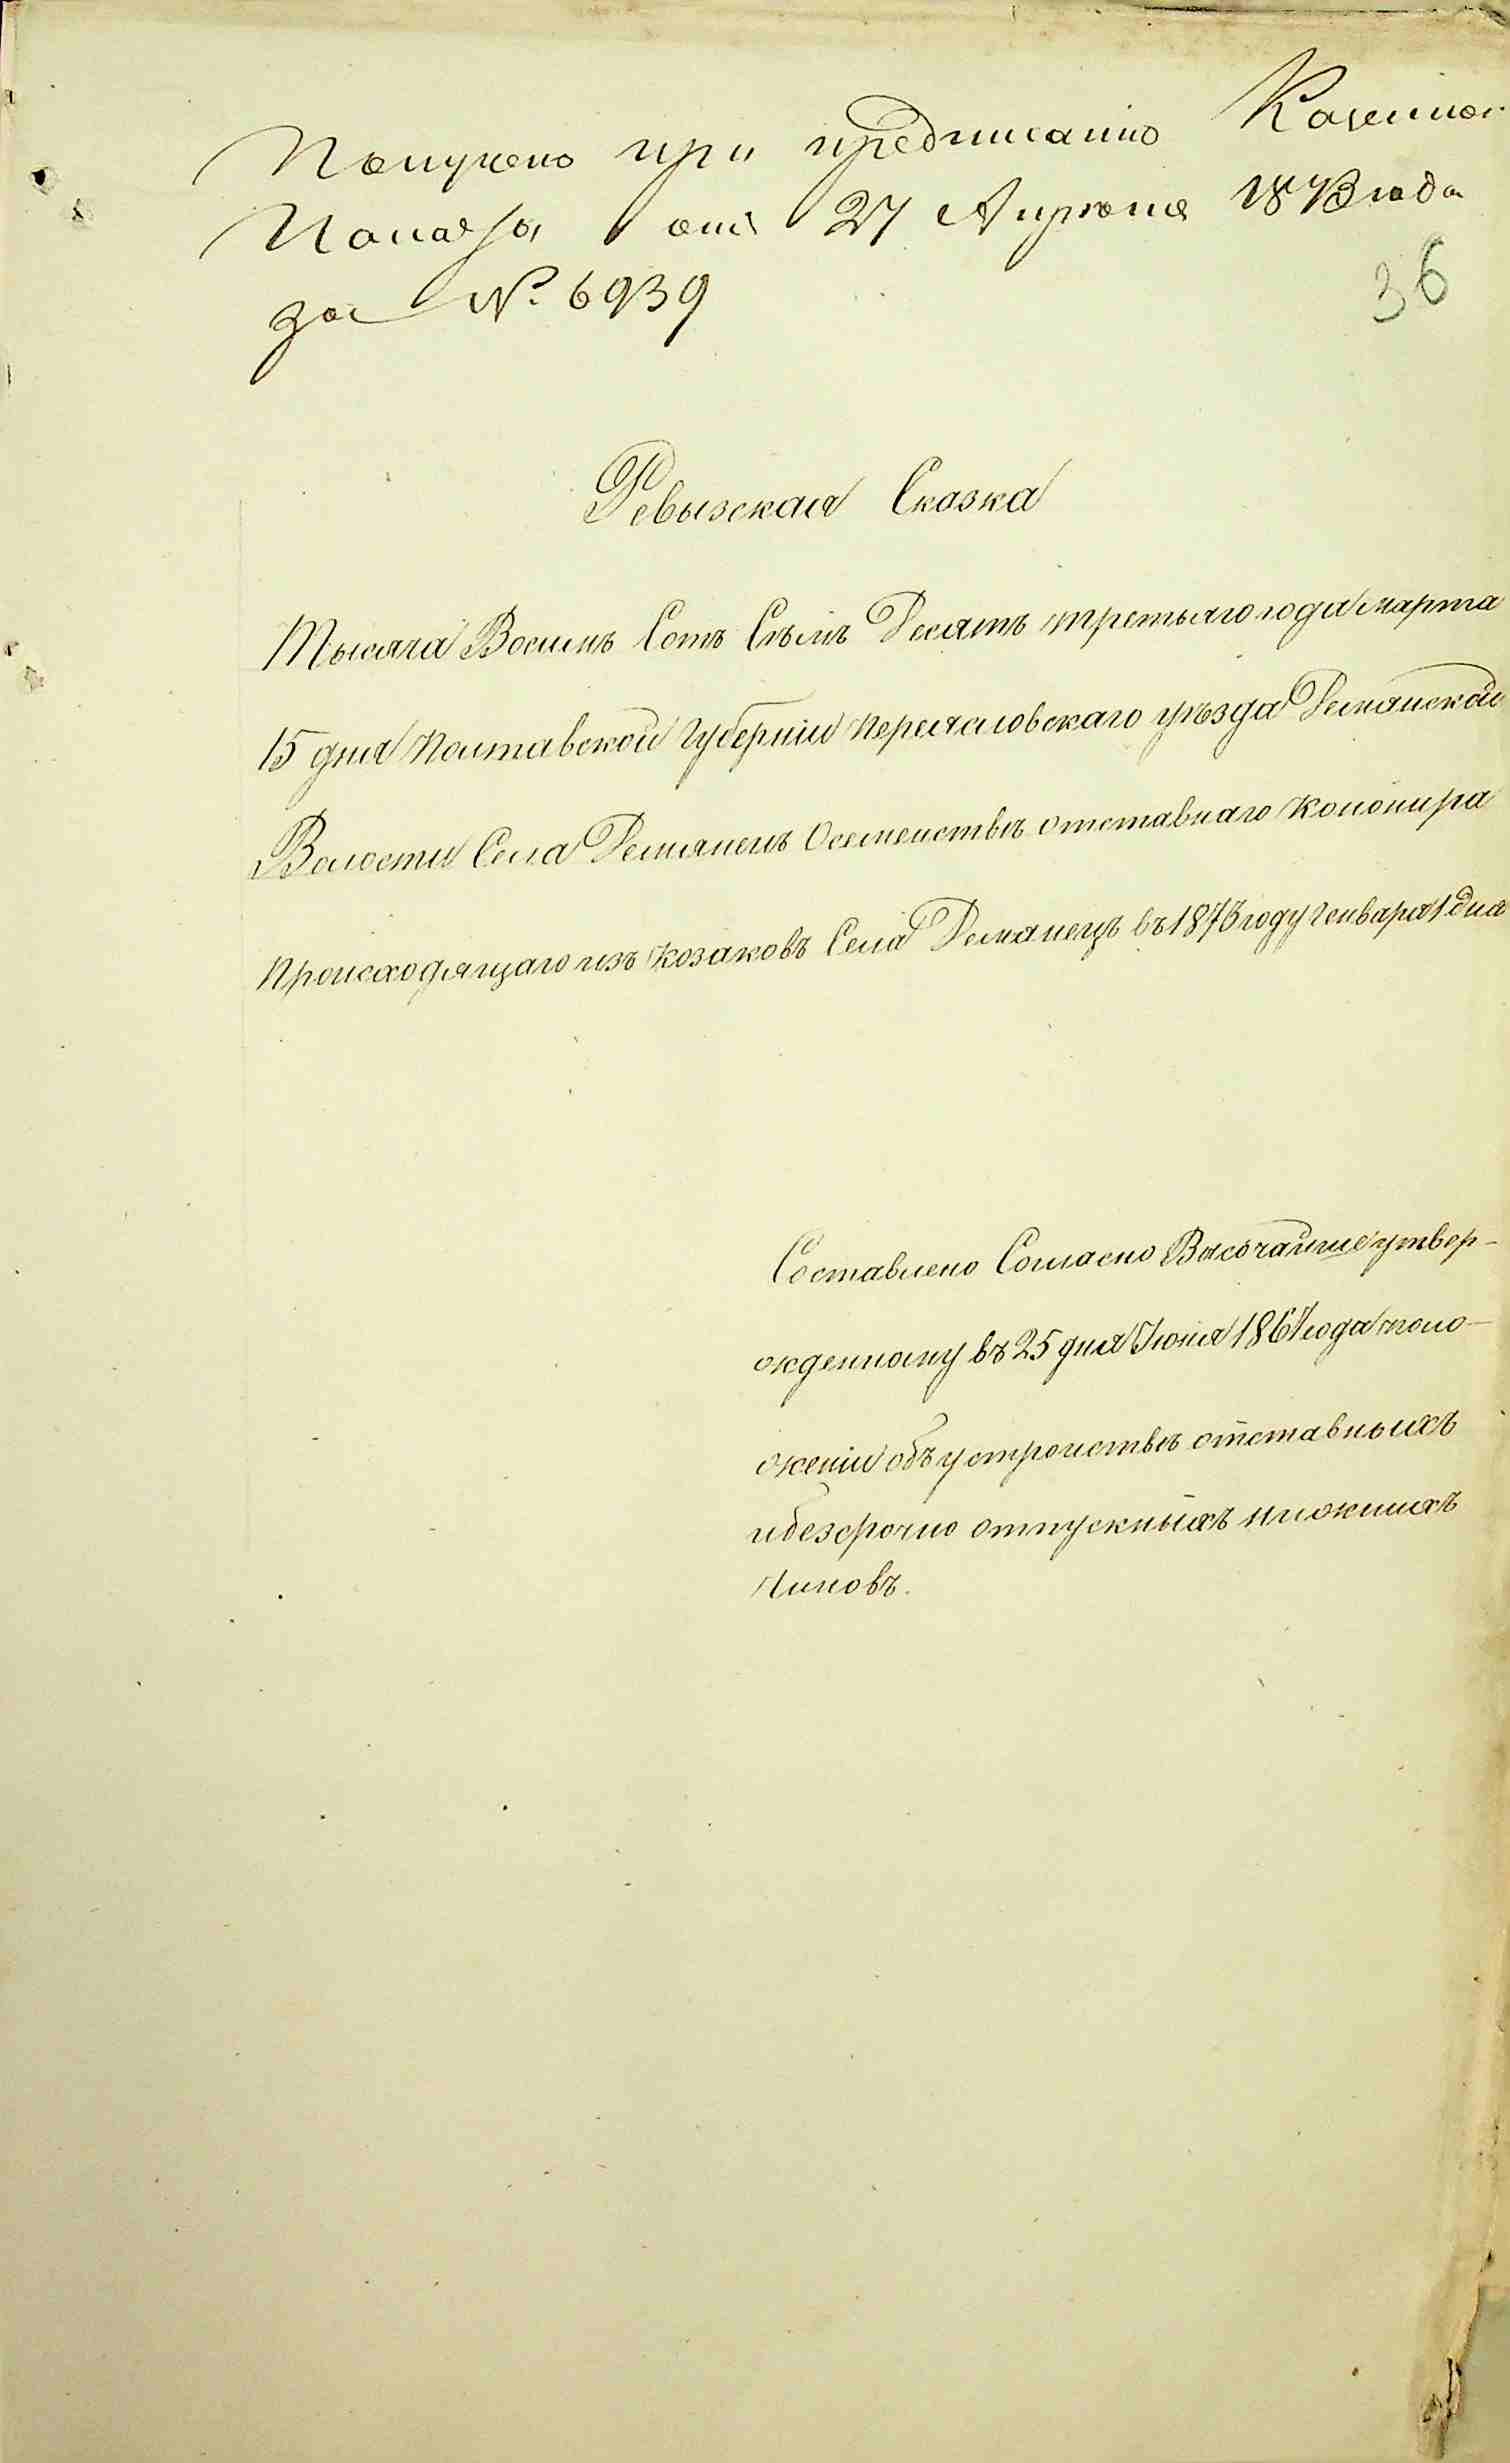 Получено при предписании Казенной
Палаты отъ 27 Апреля 1873 года
за № 6939
36
Ревызская Сказка
Тысяча Восимъ Сотъ Семъ Десятъ третьяго года марта
15 дня Полтавской Губерніи Переясловскаго уезда Демянской
Волости Села Демянецъ Осемействе отставнаго Канонира
Происходящаго изъ козаковъ Села Демянецъ въ 1873 году Генваря 1 дня
Составлено Согласно Высочайше утвер-
жденному въ 25 день Іюня 1867 года поло-
женіи объ устроистве отставныхъ
и безсрочно отпускныхъ нижнихъ
Чиновъ.